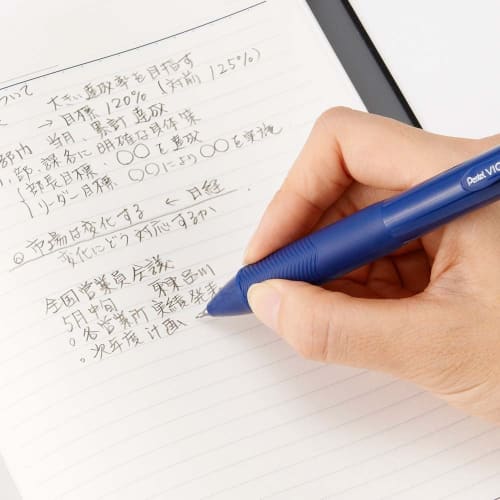 ついて
大きい達成率を目指す
→目標120% (対前125%)
部内 当月、累計達成
部、課名に明確な具体策
部長目標、○○を達成
リーダー目標 ○○により○○を実施
市場は変化する ← 日経
変化にどう対応するか
全国営業員会議
5月中旬 東京品川
。各営業所実績発表
。次年度計画
Pentel VIC